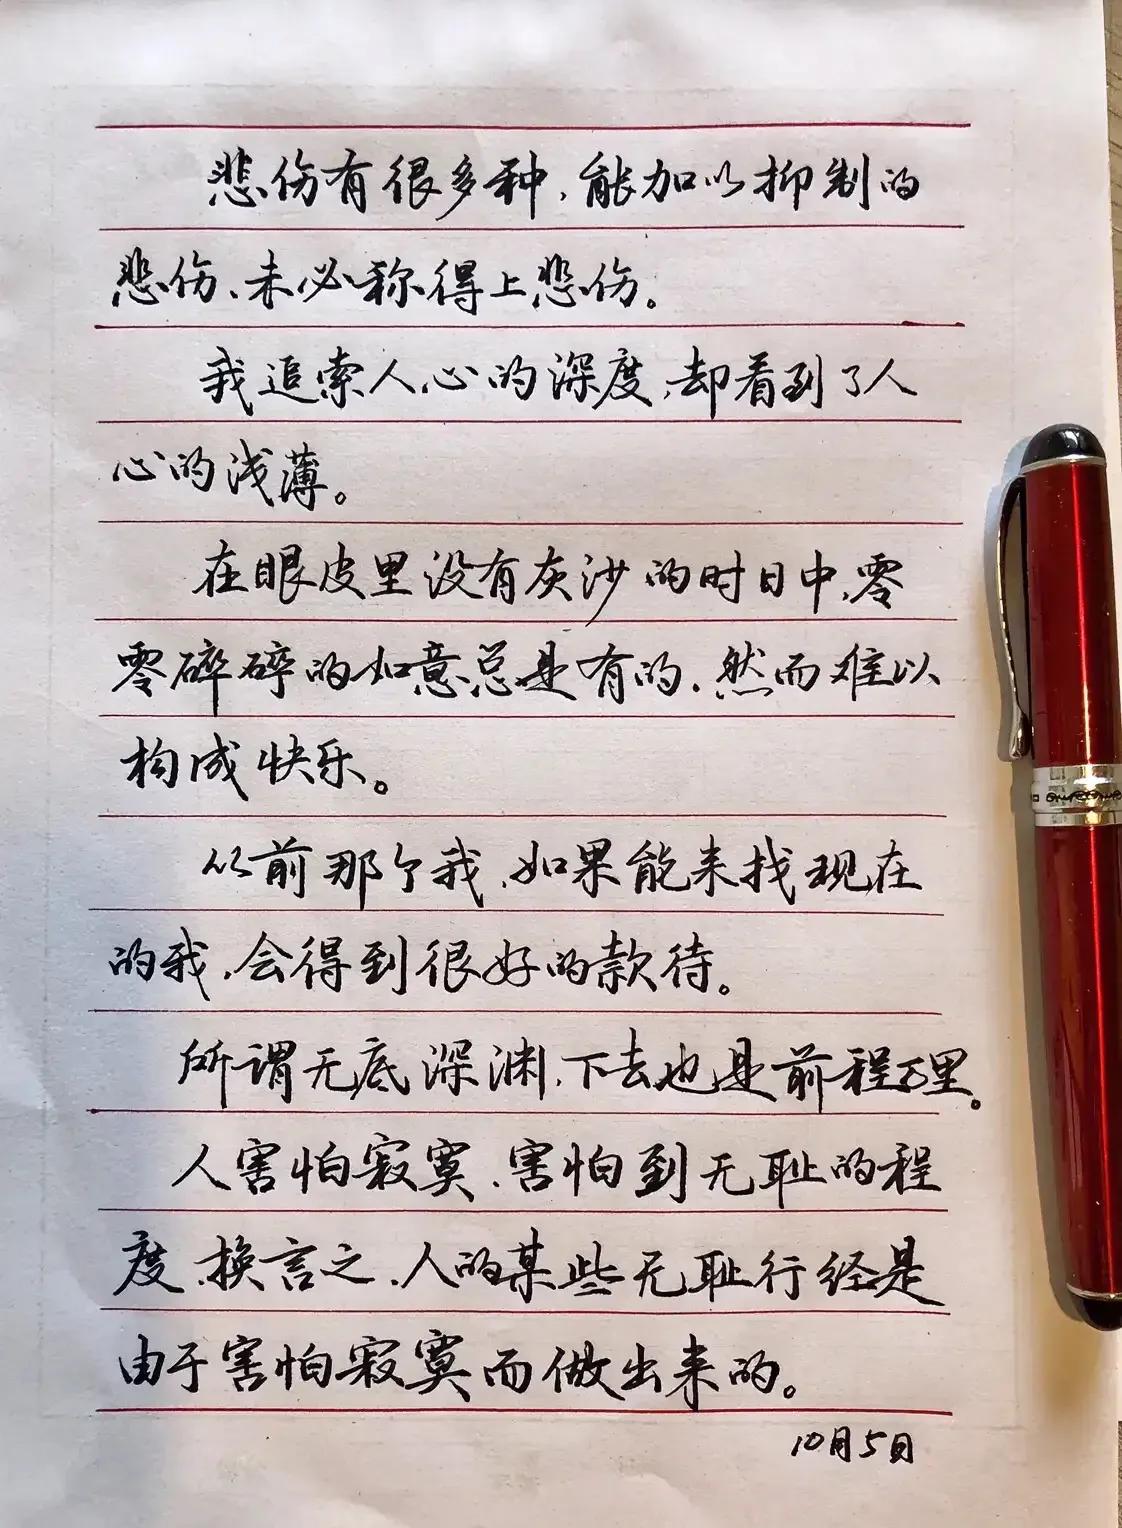 悲伤有很多种,能加以抑制的
悲伤,未必称得上悲伤。
我追索人心的深度,却看到了人
心的浅薄。
在眼皮里没有灰沙的时日中,零
零碎碎的如意总是有的,然而难以
构成快乐。
以前那个我,如果能来找现在
的我,会得到很好的款待。
所谓无底深渊,下去也是前程万里。
人害怕寂寞,害怕到无耻的程
度,换言之,人的某些无耻行经是
由于害怕寂寞而做出来的。
10月5日